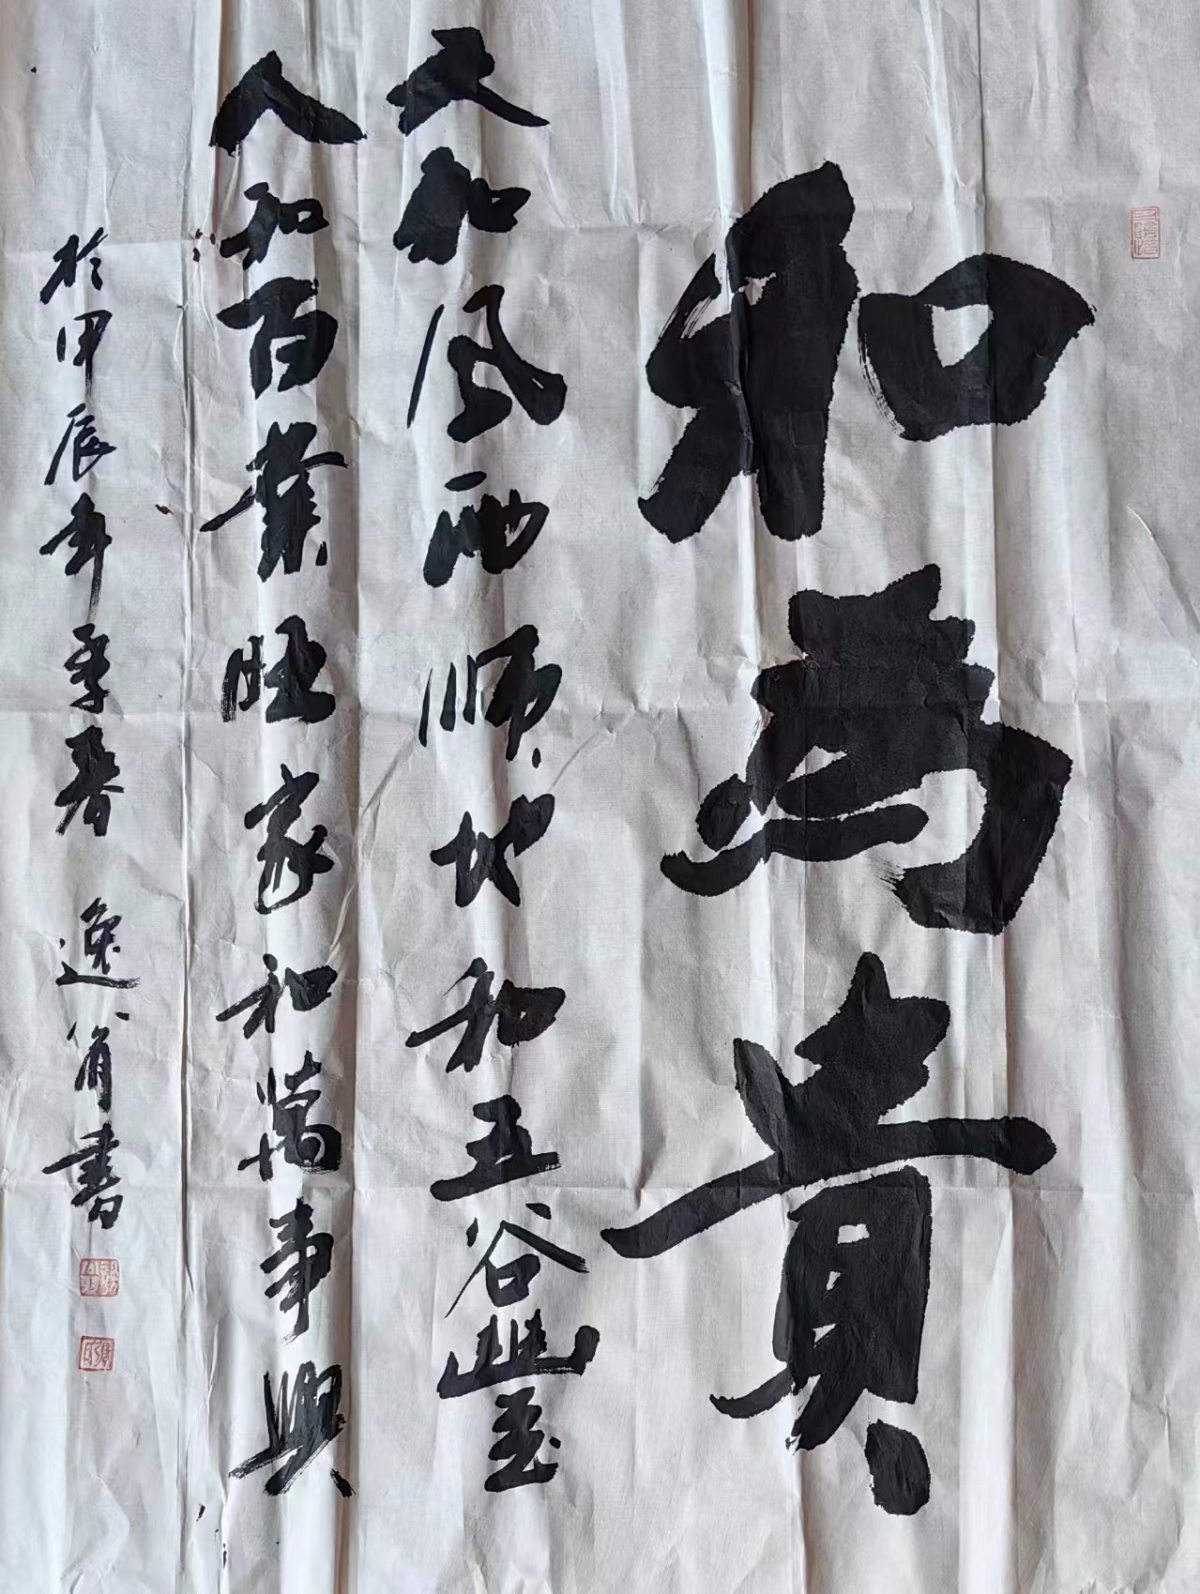 和為貴
天和風雨順地和五谷豐
人和百業旺家和萬事興
於甲辰年季春 逸翁書